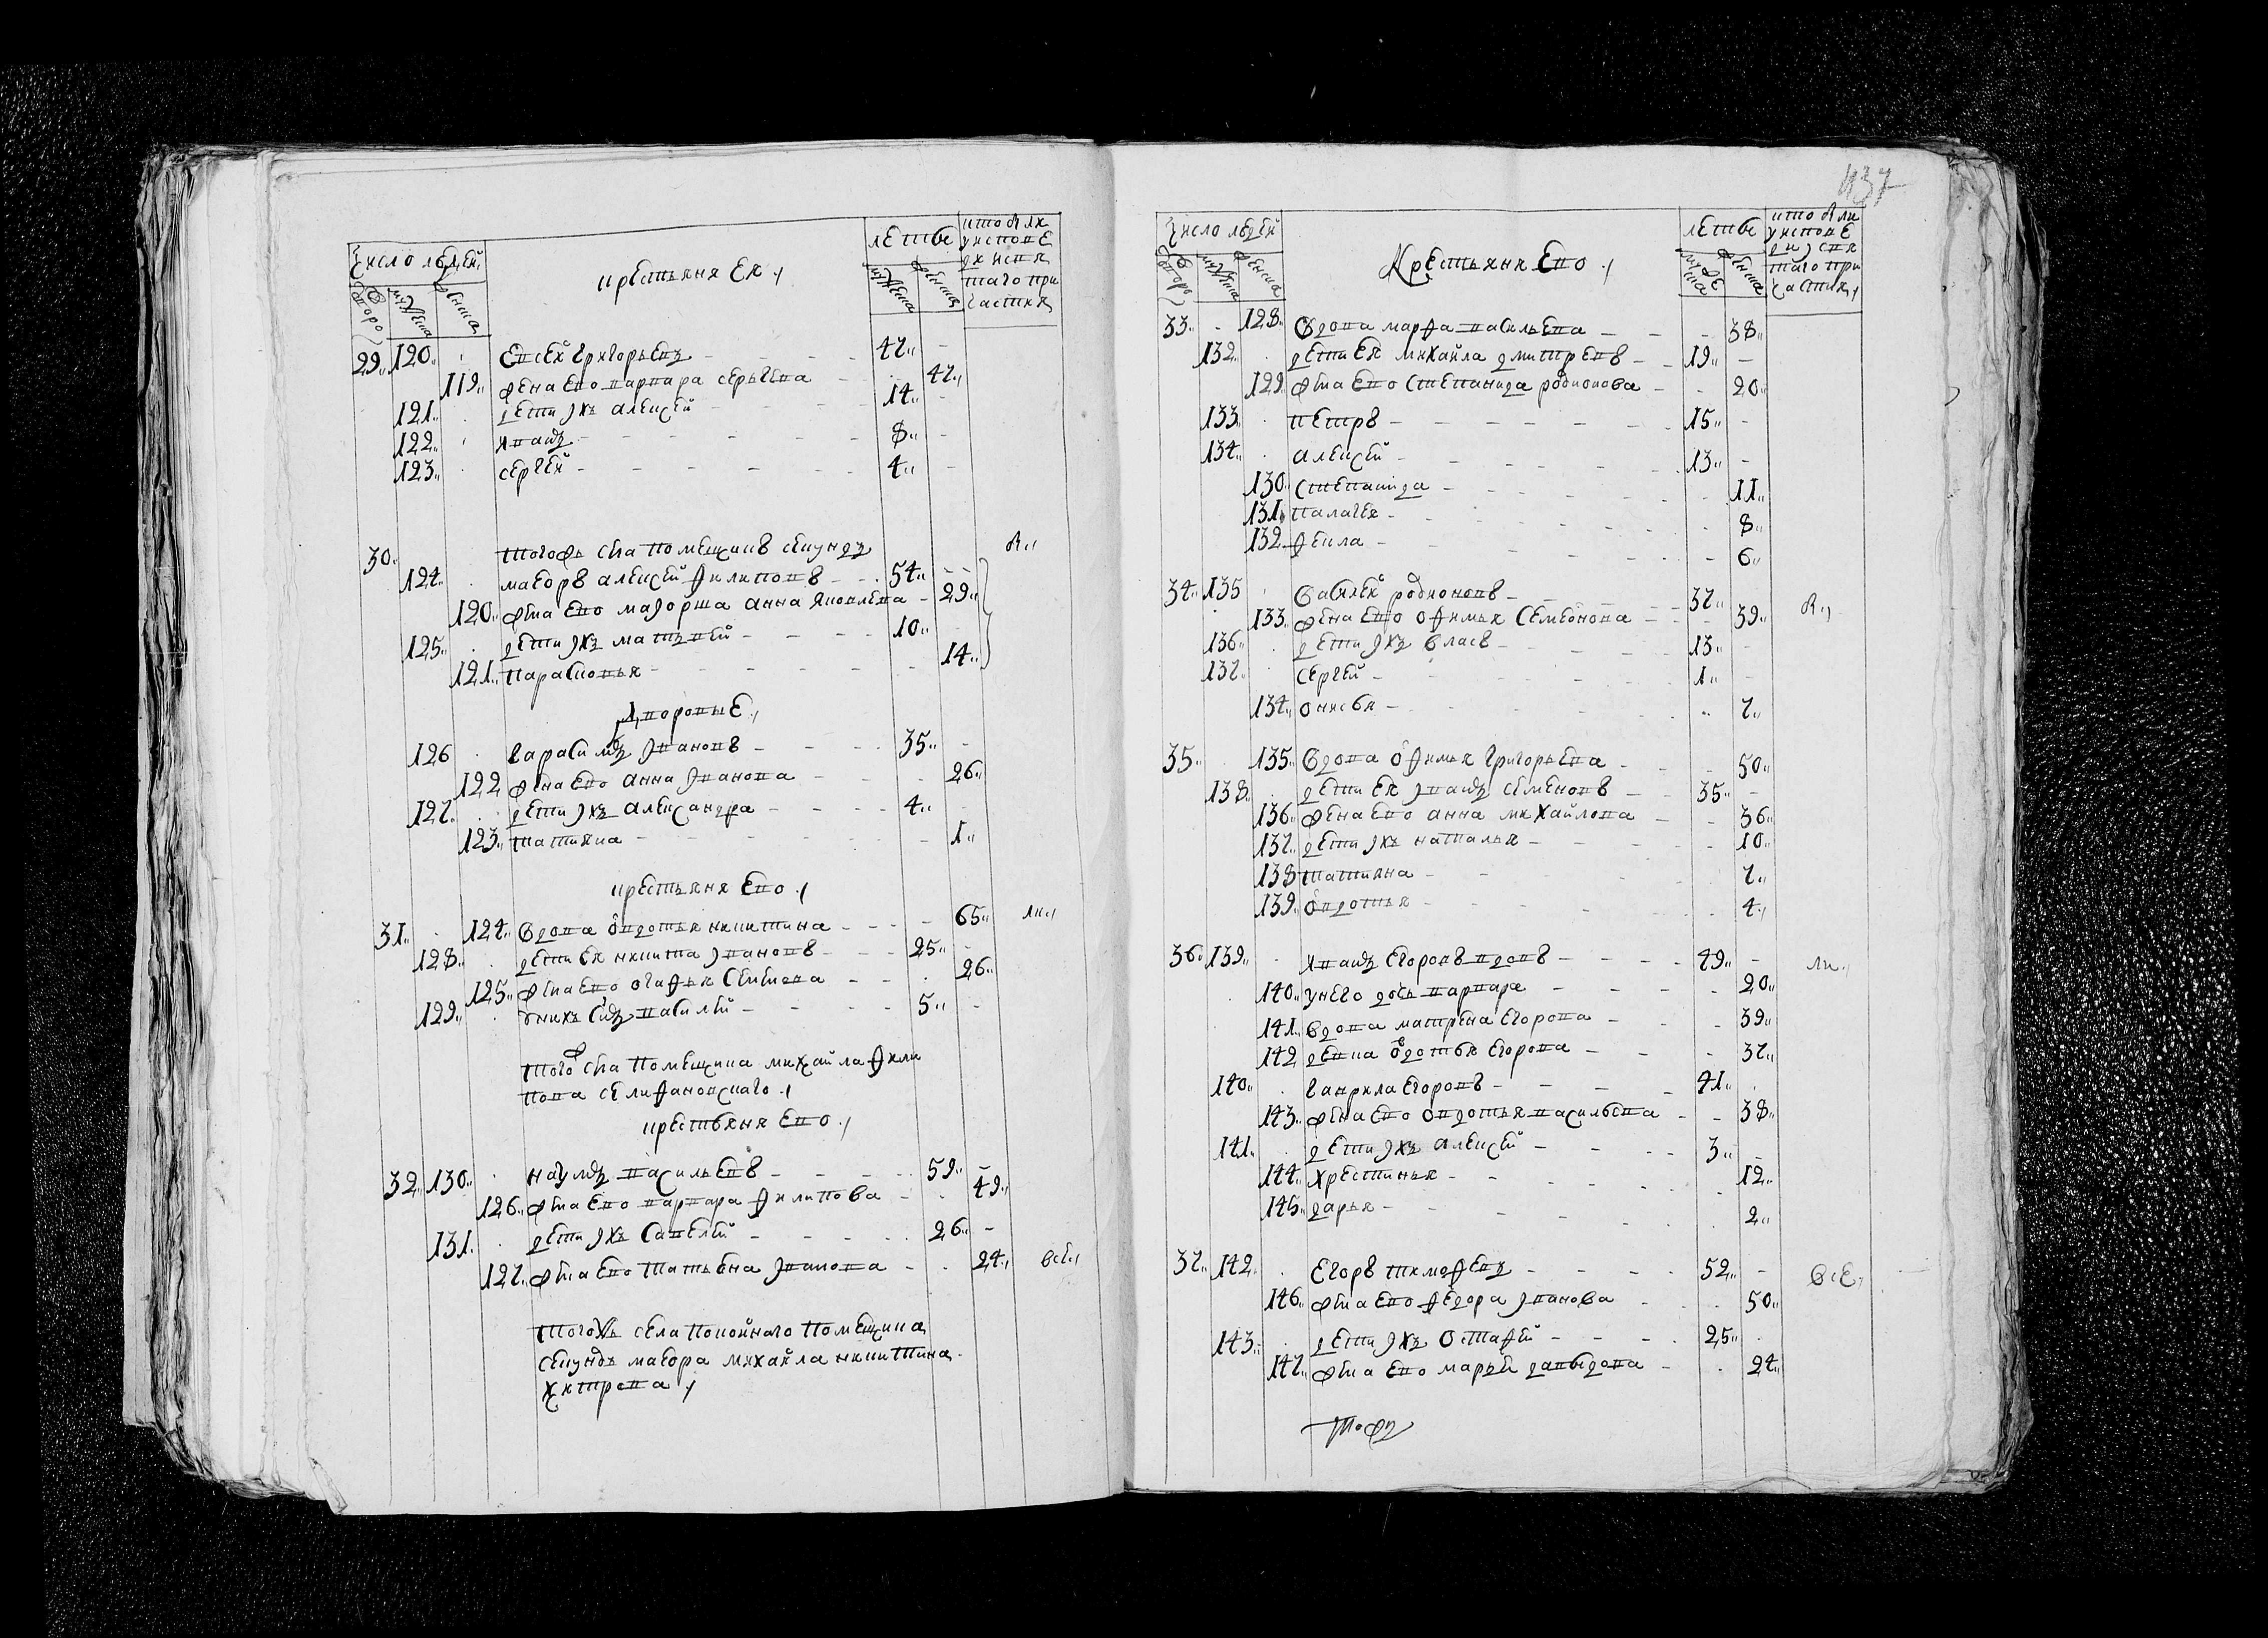 число людей
дворо
мужеска
женска
крестьяня ея
летъ
мужеска
женска
кто былъ
у исповеди и святаго причастия
29 120 Евсей григорьевъ 47
119 жена ево варвара серьгева 47
121 дети ихъ алексей 14
122 иванъ 8
123 сергей 4
30 тогожъ села помещикъ секундъ
124 маеоръ алексей филиповъ 54
120 жена ево маіорша анна яковлева 29
125 дети ихъ матвей 10
121 парасковья 14
Дворовые
126 гарасимъ ивановъ 35
122 жена ево анна иванова 26
127 дети ихъ александра 4
123 татияна 1
крестьяня ево
31 124 вдова овдотья никитина 65
128 дети ея никита ивановъ 25
125 жена ево огафья 26
129 у нихъ сынъ василей 5
того же села помещика михайла фили
пова селифановскаго
крестьяня ево
32 130 наумъ васильевъ 59
126 жена ево варвара филипова 49
131 дети ихъ савелей 26
127 жена ево татьяна иванова 24 все
тогожъ села покойнаго помещика
секундъ маеора михайла никитина
хитрова
437
число людей
дворо
мужеска
женска
Крестьяня Ево
летъ
мужеска
женска
33 128 Вдова марфа васильева 38
132 дети ея михайла дмитревъ 19
129 жена ево степанида родионова 20
133 петръ 15
134 алексей 13
130 степанида 11
131 палагея 8
132 фекла 6
34 135 Василей родионовъ 37
133 жена ево офимья семеонова 39
136 дети ихъ власъ 13
137 сергей 1
134 онисья 7
35 135 Вдова офимья григорьева 50
138 дети ея иванъ семеновъ 35
136 жена ево анна михайлова 36
137 дети ихъ наталья 10
138 татияна 7
139 овдотья 4
36 139 иванъ егоровъ вдовъ 49
140 у него дочь варвара 20
141 вдова матрена егорова 39
142 девка овдотья егорова 37
140 гаврила егоровъ 41
143 жена ево овдотья васильева 38
141 дети ихъ алексей 3
144 хрестинья 12
145 дарья 2
37 142 Егоръ тимофевъ 52 все
146 жена ево федора иванова 50
143 дети ихъ остафей 25
147 жена ево марья давыдова 24
тожъ